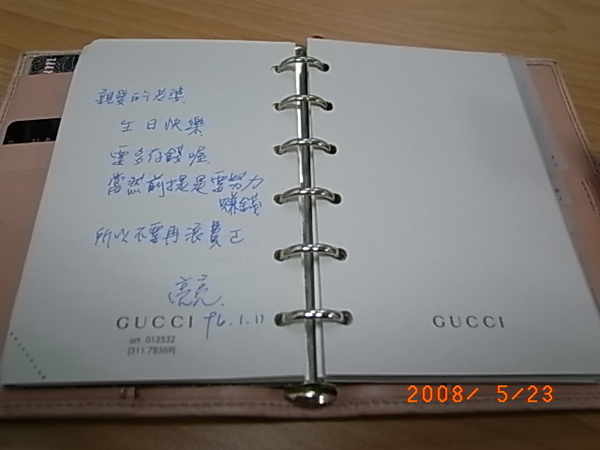 親愛的老婆
生日快樂
要多存錢喔
當然前提是要努力
賺錢
所以不要再浪費
亮亮.
96.1.11
GUCCI
art. 012532
(311 78369)
GUCCI
2008/ 5/23